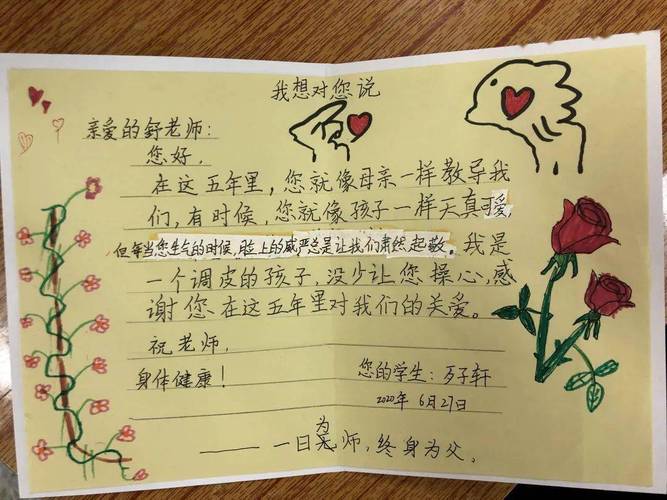 我想对您说
亲爱的舒老师：
您好，
在这五年里，您就像母亲一样教导我
们，有时候，您就像孩子一样天真可爱，
但每当您生气的时候，脸上的威严总是让我们肃然起敬。我是
一个调皮的孩子，没少让您操心，感
谢您在这五年里对我们的关爱。
祝老师，
身体健康！
您的学生：歹子轩
2020年 6月27日
——一日为师，终身为父。